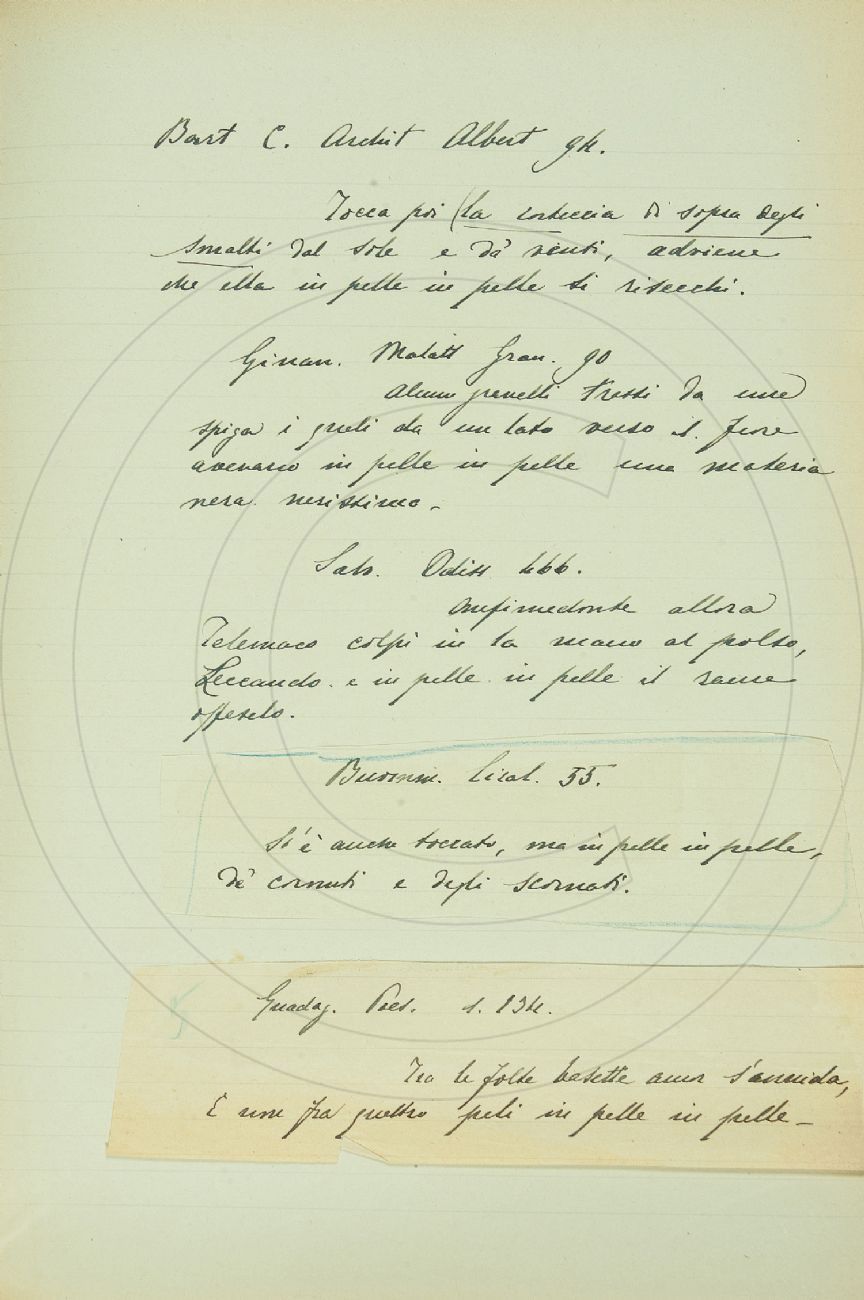 Bart C. Archit Albert 94.
Tocca poi (la corteccia di sopra degli
smalti dal sole e da' venti, adviene
che ella in pelle in pelle si risecchi.
Ginan. Malatt Gran. 90
Alcuni granelli tratti da una
spiga i quali da un lato verso il fiore
avevano in pelle in pelle una materia
nera nerissima.
Salv. Odiss 466.
Anfimedonte allora
Telemaco colpì in la mano al polso,
Leccando e in pelle in pelle il rame
offeselo.
Buomm. Cical. 55.
Si è anche toccato, ma in pelle in pelle,
de' cornuti e degli scornati.
Guadag. Poes. 1. 134.
Tra le folte basette amor s'annida,
E non fra quattro peli in pelle in pelle